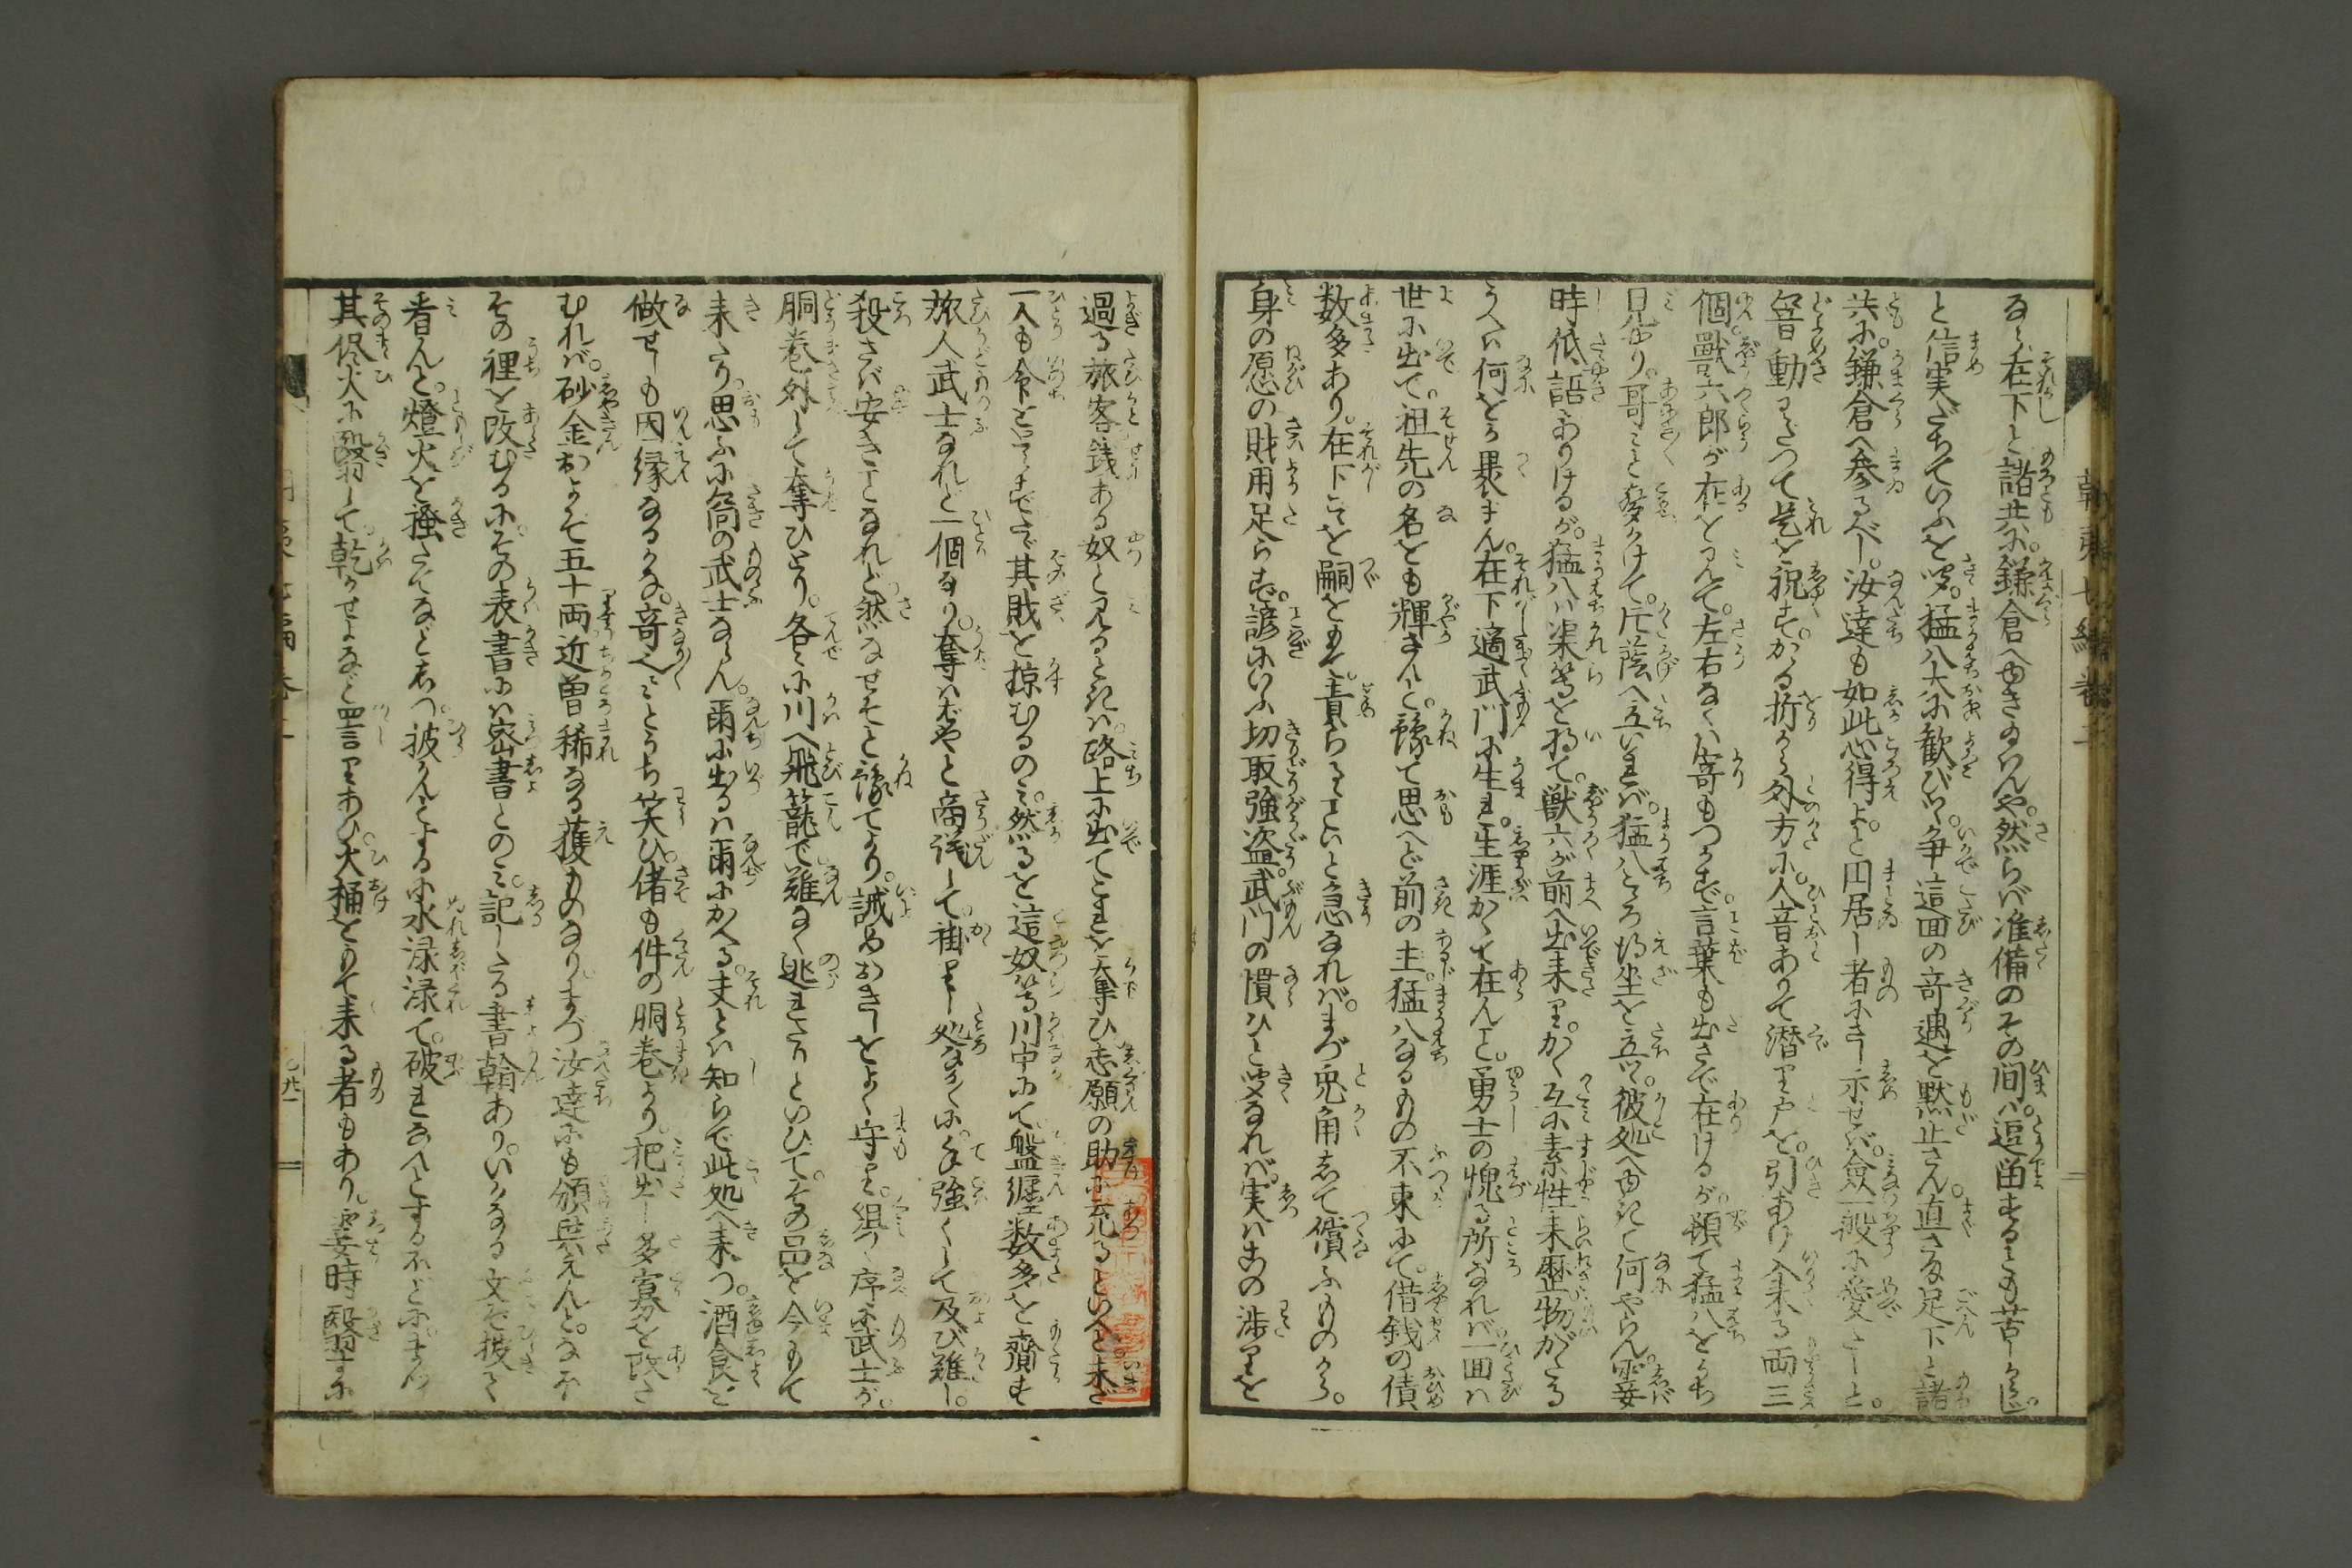 なら在下と諸共に。鎌倉へゆき給はんや。然らば准備のその間は。逗留するとも苦しからじ。
と信実だちていふを聞。猛八大に歓びつ。争這回の奇遇を黙止さん。直さま足下と諸
共に。鎌倉へ参るべし。汝達も如此心得よと。円居し者にさし示せば。僉一般に愛たしと。
響動わたつて是を祝す。かゝる折から外方に。人音ありて潜り戸を。引あけ入来る両三
個。獣六郎が在を見て。左右なくは寄もつかず。言葉も出さで在けるが。頓て猛八をうち
見やり。哥々と声かけて。片蔭へ立いれば。猛八ところの坐を立て。彼処へゆきて何やらん。霎
時低語ありけるが。猛八は渠等を将て。獣六が前へ出来り。かく互に素性来歴物がたる
うへは何をか裹まん。在下適武門に生れ。生涯かくて在んこと。勇士の愧る所なれば。一回は
世に出て。祖先の名をも輝さんと。豫て思へど前の主。猛八なるもの不束にて。借銭の債
数多あり。在下こを嗣をもて。責らるゝこといと急なれば。まづ兎角して償ふものから。
身の愿の財用足らず。諺にいふ切取強盗。武門の慣ひと聞なれば。実はこの渉りを
過る旅客銭ある奴と見るときは。路上に出てこれを奪ひ。志願の助に充るといへど。未ダ
一人も命をとらずでたゞ其財を掠むるのミ。然るを這奴等川中にて。盤纏数多を齎す
旅人武士なれど一個なり。奪はゞやと商譚して。裸にし処なるに。手強くして及び難し。
殺さば安きことなれど。然はなせそと豫てより。誡めおきしをよく守り。組つ序に武士が。
胴巻外して奪ひとり。各々に川へ飛こんで難なく逃れさりといひて。その品を今もて
来たり。思ふに向の武士ならん。爾に出るは爾にかへる。夫とは知らで此処へ来つ。酒食を
做せしも因縁なるかな。奇々とうち笑ひ。偖も件の胴巻より。把出し多寡を改さ
むれば。砂金およそ五十両近曽稀なる獲ものなり。まづ汝達にも頒与えんと。なほ
その裡を改むるに。その表書には密書とのミ。記したる書翰あり。いかなる文ぞ披て
看んと。燈火を掻たてなどしつ。披かんとするに水渌渌て。破れなんとするほどに。まづ
其侭火に翳して。乾かせよなど罵りあひ。火桶をもて来る者もあり。霎時翳すに